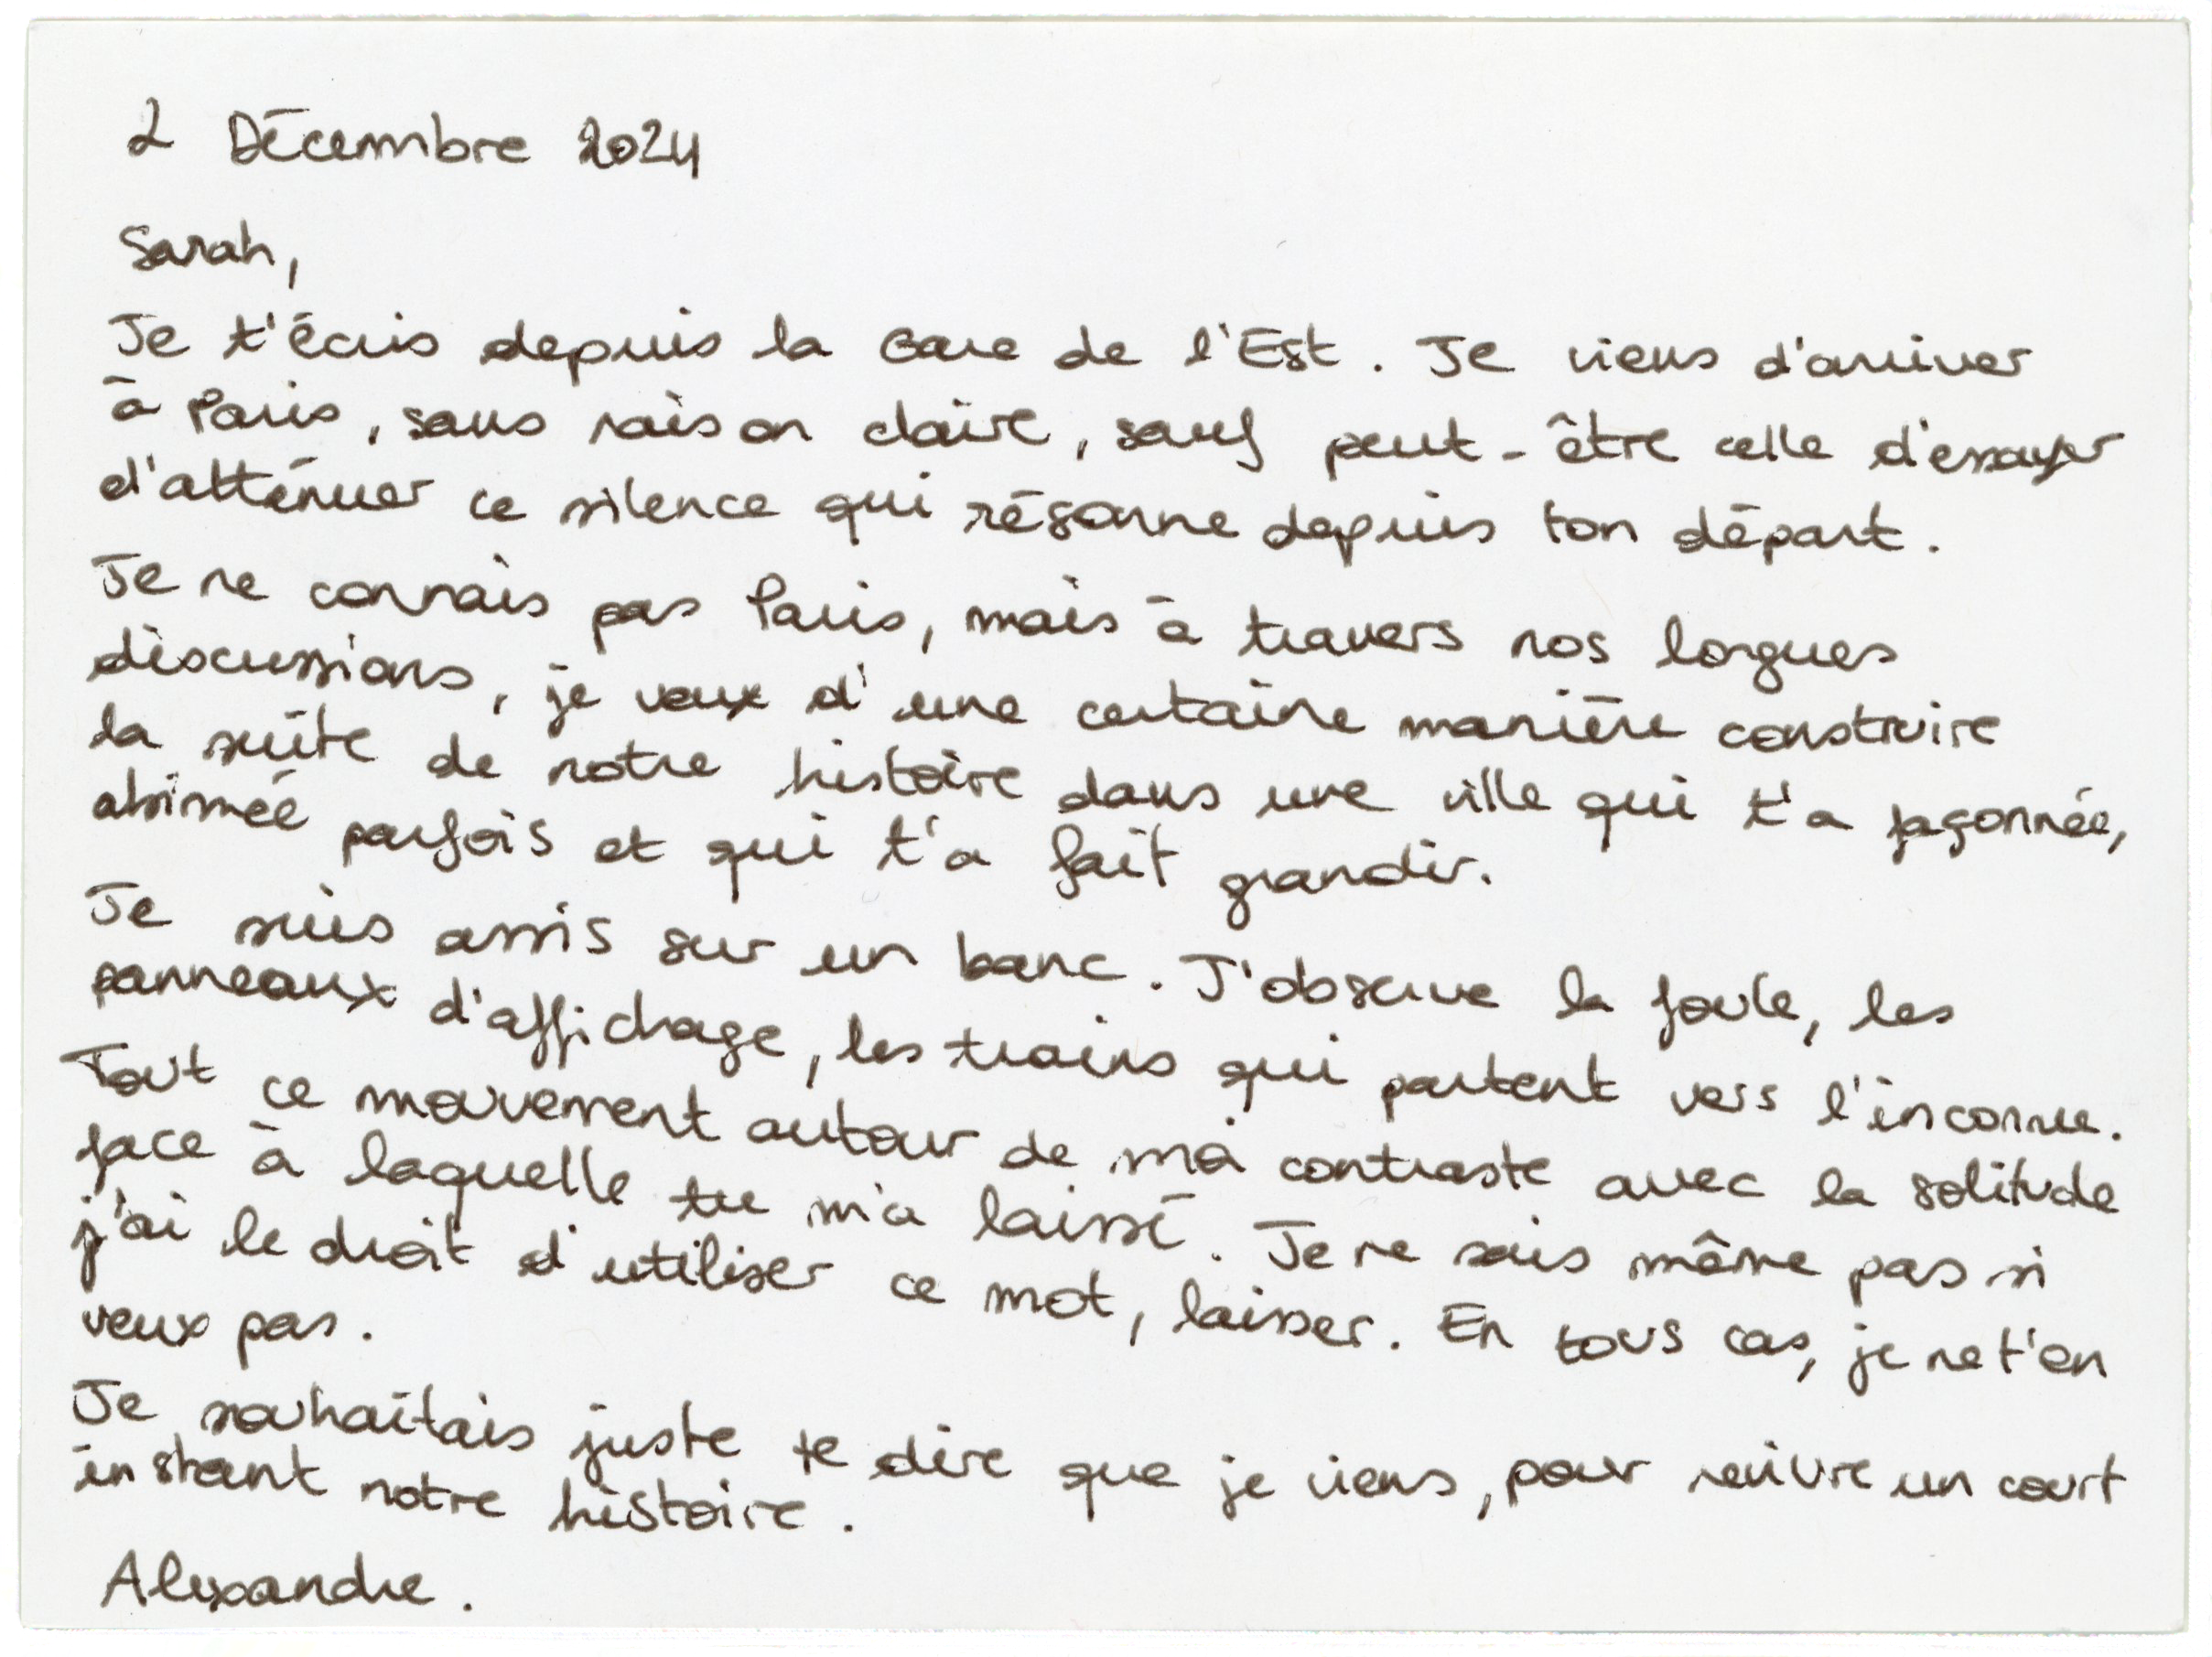 2 Décembre 2024
Sarah,
Je t'écris depuis la Gare de l'Est. Je viens d'arriver
à Paris, sans raison claire, sauf peut-être celle d'essayer
d'atténuer ce silence qui résonne depuis ton départ.
Je ne connais pas Paris, mais à travers nos longues
discussions, je veux d'une certaine manière construire
la suite de notre histoire dans une ville qui t'a façonnée,
abimée parfois et qui t'a fait grandir.
Je suis assis sur un banc. J'observe la foule, les
panneaux d'affichage, les trains qui partent vers l'inconnu.
Tout ce mouvement autour de moi contraste avec la solitude
face à laquelle tu m'a laissé. Je ne sais même pas si
j'ai le droit d'utiliser ce mot, laisser. En tous cas, je ne t'en
veux pas.
Je souhaitais juste te dire que je viens, pour revivre un court
instant notre histoire.
Alexandre.